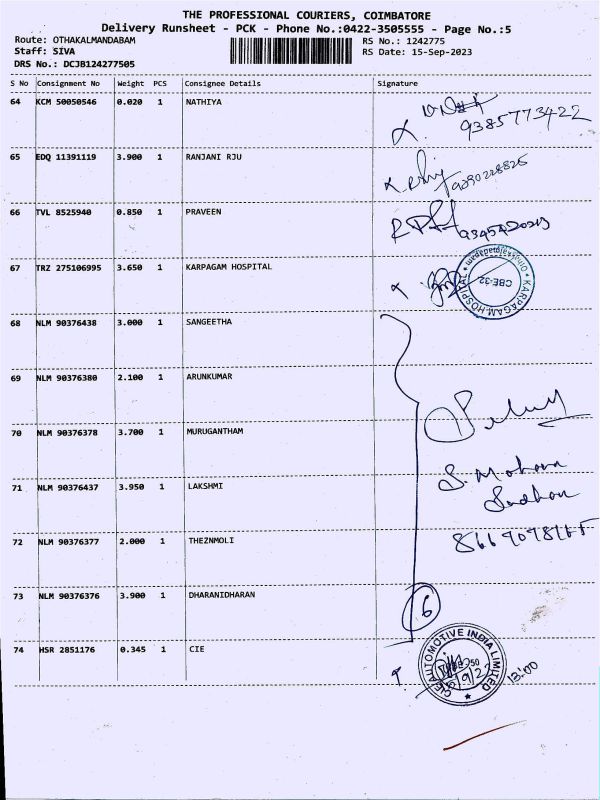 THE PROFESSIONAL COURIERS, COIMBATORE
Delivery Runsheet - PCK - Phone No.:0422-3505555 - Page No.:5
Route: OTHAKALMANDABAM RS No.: 1242775
Staff: SIVA RS Date: 15-Sep-2023
DRS No.: DCJB124277505
S No Consignment No Weight PCS Consignee Details Signature
64 KCM 50050546 0.020 1 NATHIYA
9385773422
65 EDQ 11391119 3.900 1 RANJANI RJU
66 TVL 8525940 0.850 1 PRAVEEN
67 TRZ 275106995 3.650 1 KARPAGAM HOSPITAL
KARPAGAM HOSPITAL
CBE-32
68 NLM 90376438 3.000 1 SANGEETHA
69 NLM 90376380 2.100 1 ARUNKUMAR
70 NLM 90376378 3.700 1 MURUGANTHAM
71 NLM 90376437 3.950 1 LAKSHMI
S. Mohana
72 NLM 90376377 2.000 1 THEZNMOLI
73 NLM 90376376 3.900 1 DHARANIDHARAN
6
74 HSR 2851176 0.345 1 CIE
CIE AUTOMOTIVE INDIA LIMITED